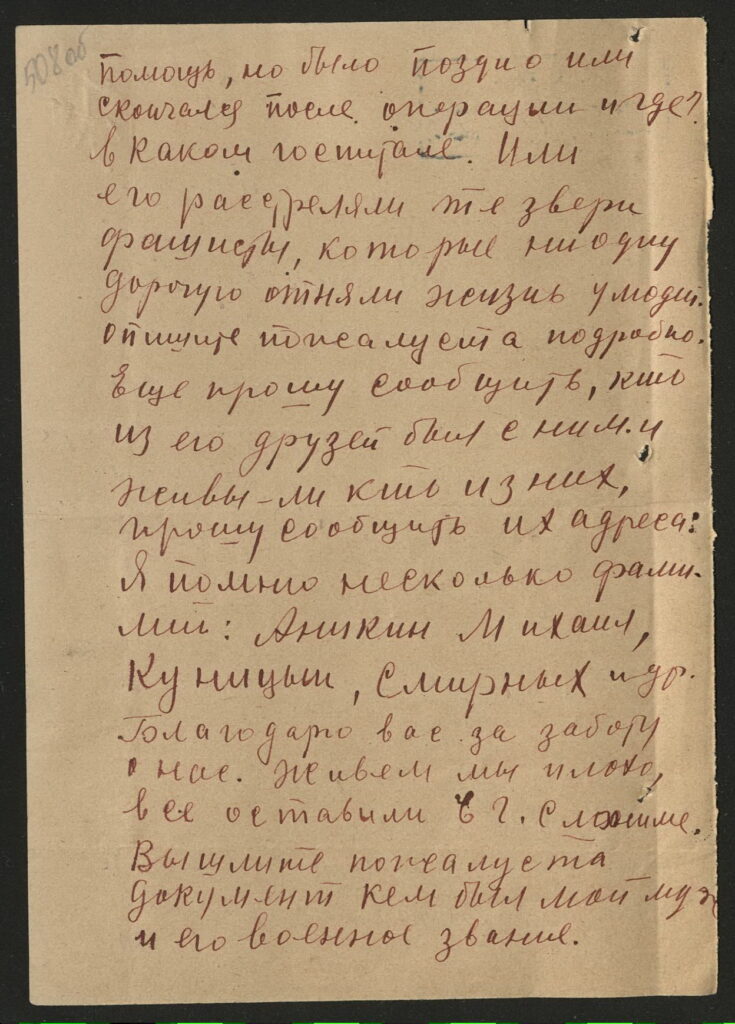 508 об
помощь, но было поздно или
скончался после операции и где?
в каком госпитале. Или
его расстреляли те звери
фашисты, которые ни одну
дорогую отняли жизнь у людей.
опишите пожалуста подробно.
Еще прошу сообщить, кто
из его друзей был с ним и
живы-ли кто из них,
прошу сообщить их адреса:
Я помню несколько фами-
лий: Аникин Михаил,
Куницын, Смирных и др.
Благодарю вас за заботу
о нас. Живем мы плохо,
все оставили в г. Слониме.
Вышлите пожалуста
документ кем был мой муж
и его военное звание.